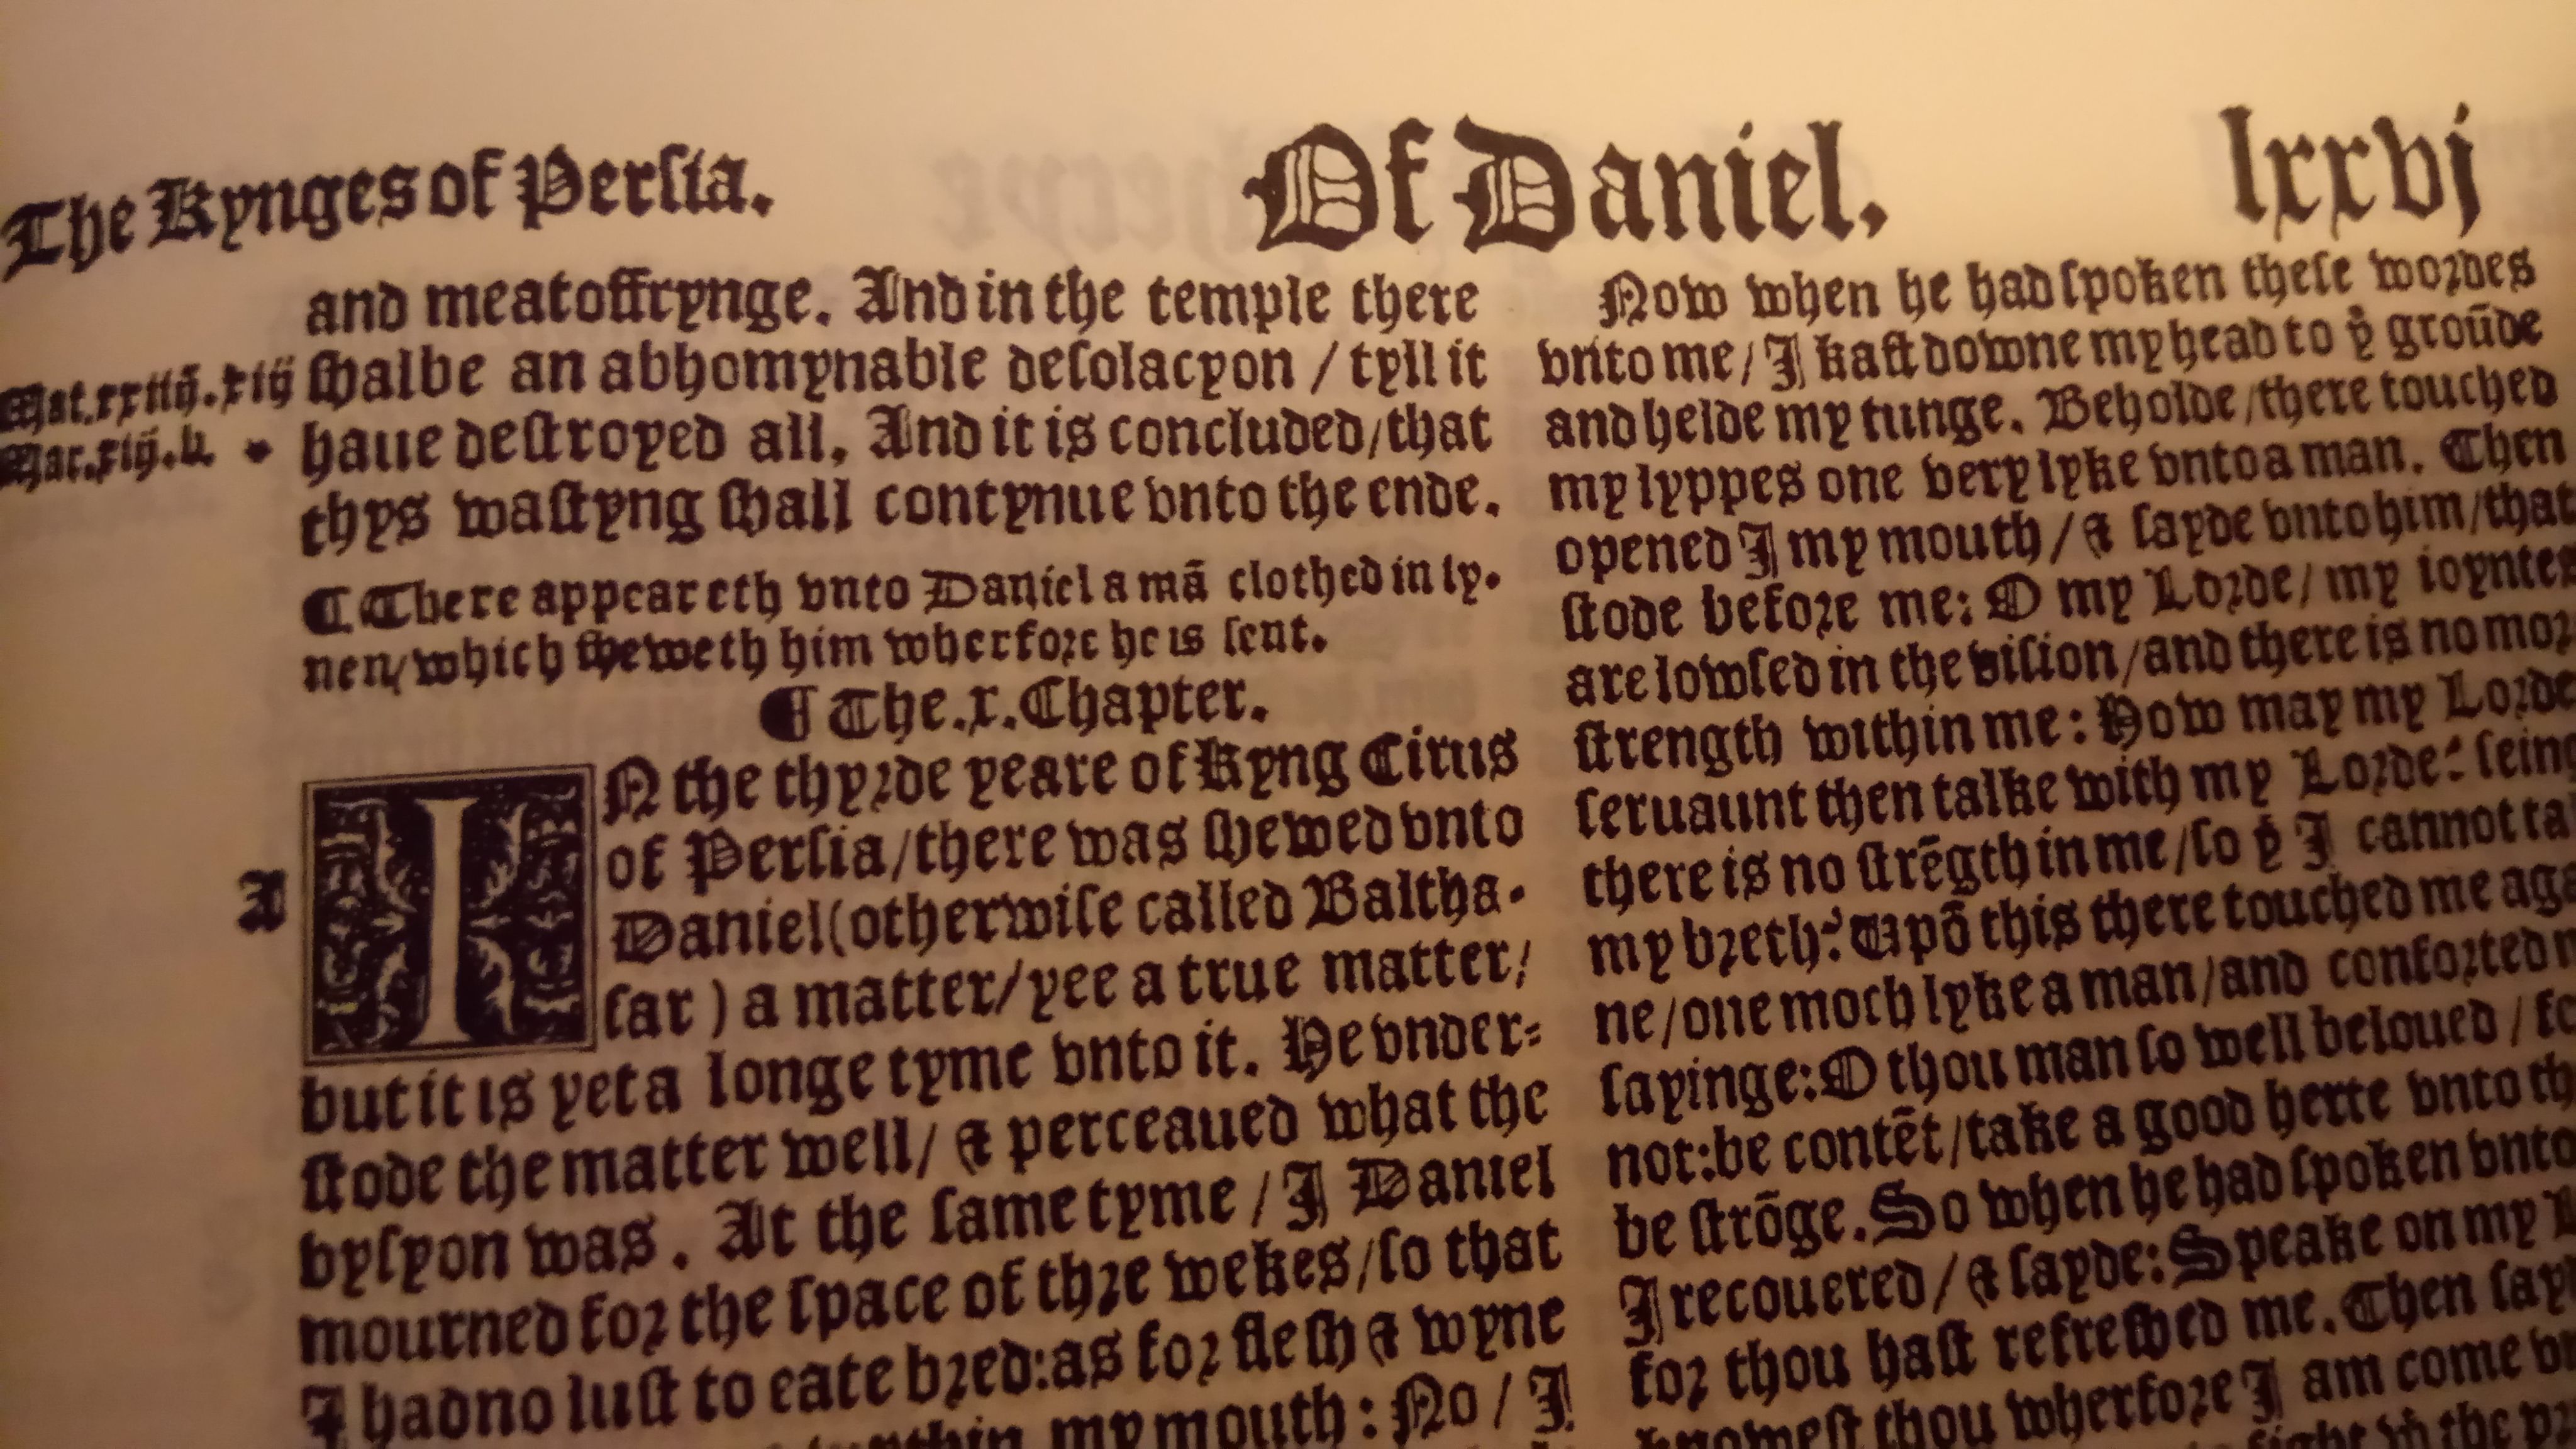 The Kynges of Persia.
Of Daniel.
lxxvj
and meatoffrynge. And in the temple there
shalbe an abhomynable desolacyon / tyll it
haue destroyed all. And it is concluded/that
thys wastyng shall contynue vnto the ende.
¶ There appeareth vnto Daniel a mā clothed in ly-
nen/which sheweth him wherfore he is sent.
¶ The .x. Chapter.
A
IN the thyrde yeare of Kyng Cirus
of Persia/there was shewed vnto
Daniel(otherwise called Baltha-
sar ) a matter/yee a true matter/
but it is yet a longe tyme vnto it. He vnder=
stode the matter well/ & perceaued what the
vysyon was . At the same tyme / I Daniel
mourned for the space of thre wekes/so that
I had no lust to eate bred:as for flesh & wyne
my mouth : No / I
Now when he had spoken these wordes
vnto me/ I kast downe my head to yͤ groūde
and helde my tunge. Beholde /there touched
my lyppes one very lyke vnto a man. Then
opened I my mouth / & sayde vnto him/that
stode before me: O my Lorde/ my ioyntes
are lowsed in the vision/and there is no mor
strength within me: How may my Lorde
seruaunt then talke with my Lorde? seing
there is no strēgth in me/so yͭ I cannot ta
my breth? Upō this there touched me aga
ne/one moch lyke a man/and conforted m
sayinge:O thou man so well beloued / fe
not:be contēt/take a good herte vnto th
be strōge. So when he had spoken vnto
I recouered/ & sayde: Speake on my L
for thou hast refreshed me. Then say
knowest thou wherfore I am come vn
fight wͭ the pr